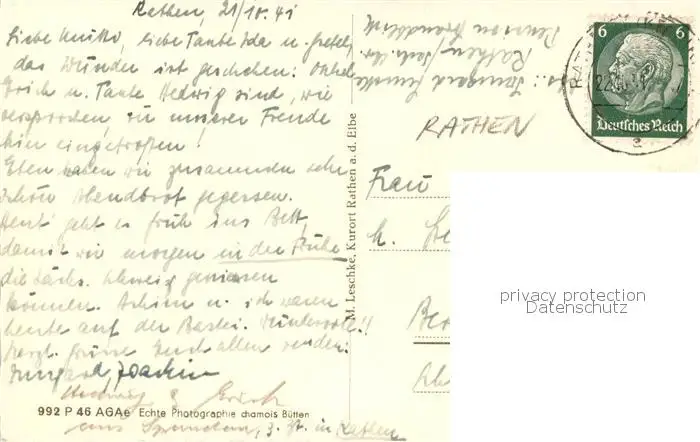 Rathen, 21/10. 41
Liebe Mutti, liebe Tante Ida u. Gretel,
das Wunder ist geschehen: Onkel
Erich u. Tante Hedwig sind, wie
versprochen, zu unserer Freude
hier eingetroffen!
Eben haben wir zusammen sehr
schön Abendbrot gegessen.
Heut' geht es früh ins Bett,
damit wir morgen in der Frühe
die Sächs. Schweiz geniessen
können. Achim u. ich waren
heute auf der Bastei. Wundervoll!!
Herzl. Grüsse Euch allen senden:
Irmgard, Joachim
Hedwig & Erich
aus Spandau, z. Zt. in Rathen
992 P 46 AGAe Echte Photographie chamois Bütten
M. Leschke, Kurort Rathen a. d. Elbe
Irmgard
Rathen/Sächs.
Pension
RATHEN
Frau
6 6
Deutsches Reich
a
privacy protection
Datenschutz